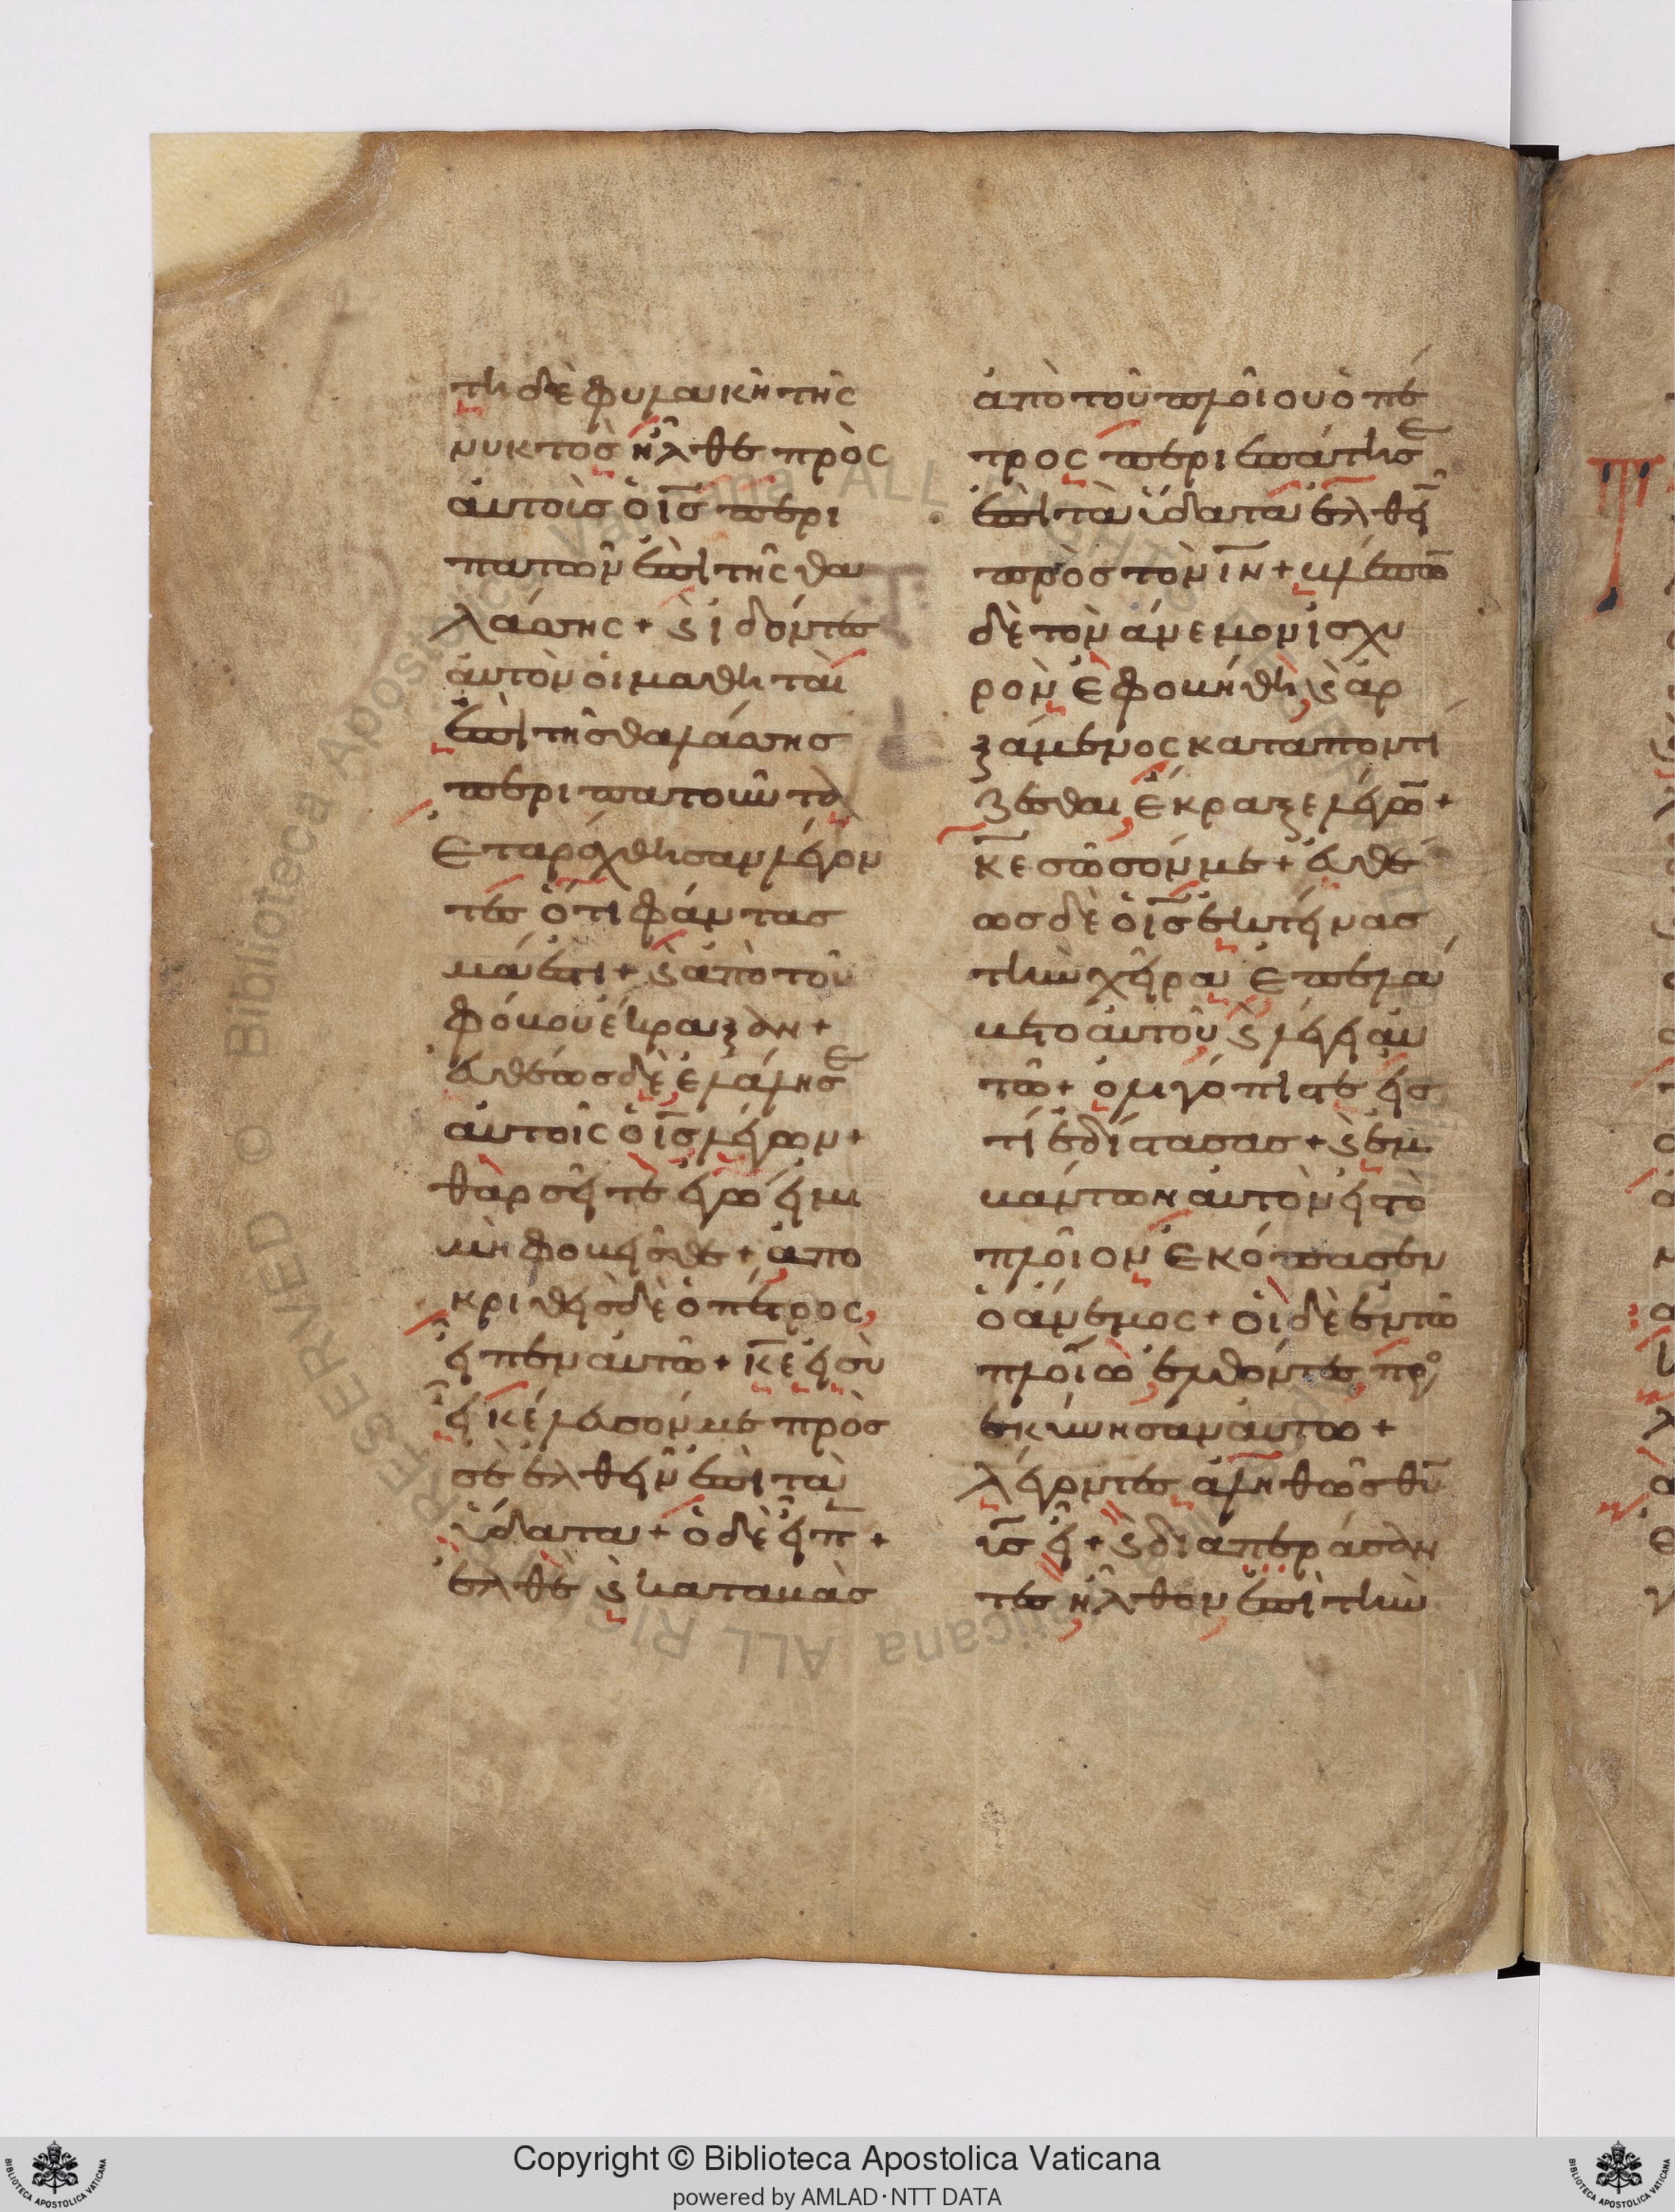 τη δὲ φυλακὴ τῆς
νυκτὸς ἦλθε πρὸς
αὐτοὺς ὁ ις περι
πατῶν ἐπὶ τῆς θα
λάσσης + ϗ ἰδόντες
αὐτὸν οἱ μαθηταὶ
ἐπὶ τῆς θαλάσσης
περιπατοῦντα
ἐταράχθησαν λέγον
τες ὅτι φάντασ
μά ἐστι + ϗ ἀπὸ τοῦ
φόβου ἔκραξαν +
εὐθέως δὲ ἐλάλησε
αὐτοῖς ὁ ις λέγων +
θαρσεῖτε ἐγώ εἰμι
μὴ φοβεῖσθε + ἀπο
κριθεὶς δὲ ὁ πέτρος
εἶπεν αὐτῶ + κε εἰ σὺ
εἶ κέλευσόν με πρὸς
σὲ ἐλθεῖν ἐπὶ τὰ
ὕδατα + ὁ δὲ εἶπ +
ἐλθὲ ϗ καταβὰς
ἀπὸ τοῦ πλοίου ὁ πέ
τρος περιεπάτησε
ἐπὶ τὰ ὕδατα ἐλθεῖ
πρὸς τὸν ιν + βλέπω
δὲ τὸν ἄνεμον ἰσχυ
ρὸν ἐφοβήθη ϗ ἀρ
ξάμενος καταποντί
ζεσθαι ἔκραξε λέγω +
κε σῶσόν με + εὐθέ
ως δὲ ὁ ις ἐκτείνας
τὴν χεῖρα ἐπελά
βετο αὐτοῦ ϗ λέγει αὐ
τῶ + ὀλιγόπιστε εἰς
τί ἐδίστασας + ϗ ἐμ
βάντων αὐτὸν εἰς τὸ
πλοῖον ἐκόπασεν
ὁ ἄνεμος + οἱ δὲ ἐν τῶ
πλοίω ἐλθόντες προ
σεκύνησαν αὐτῶ +
λέγοντες ἀληθῶς θυ
υς εἶ + ϗ διαπεράσαν
τες ἦλθον ἐπὶ τὴν
Copyright © Biblioteca Apostolica Vaticana
powered by AMLAD·NTT DATA